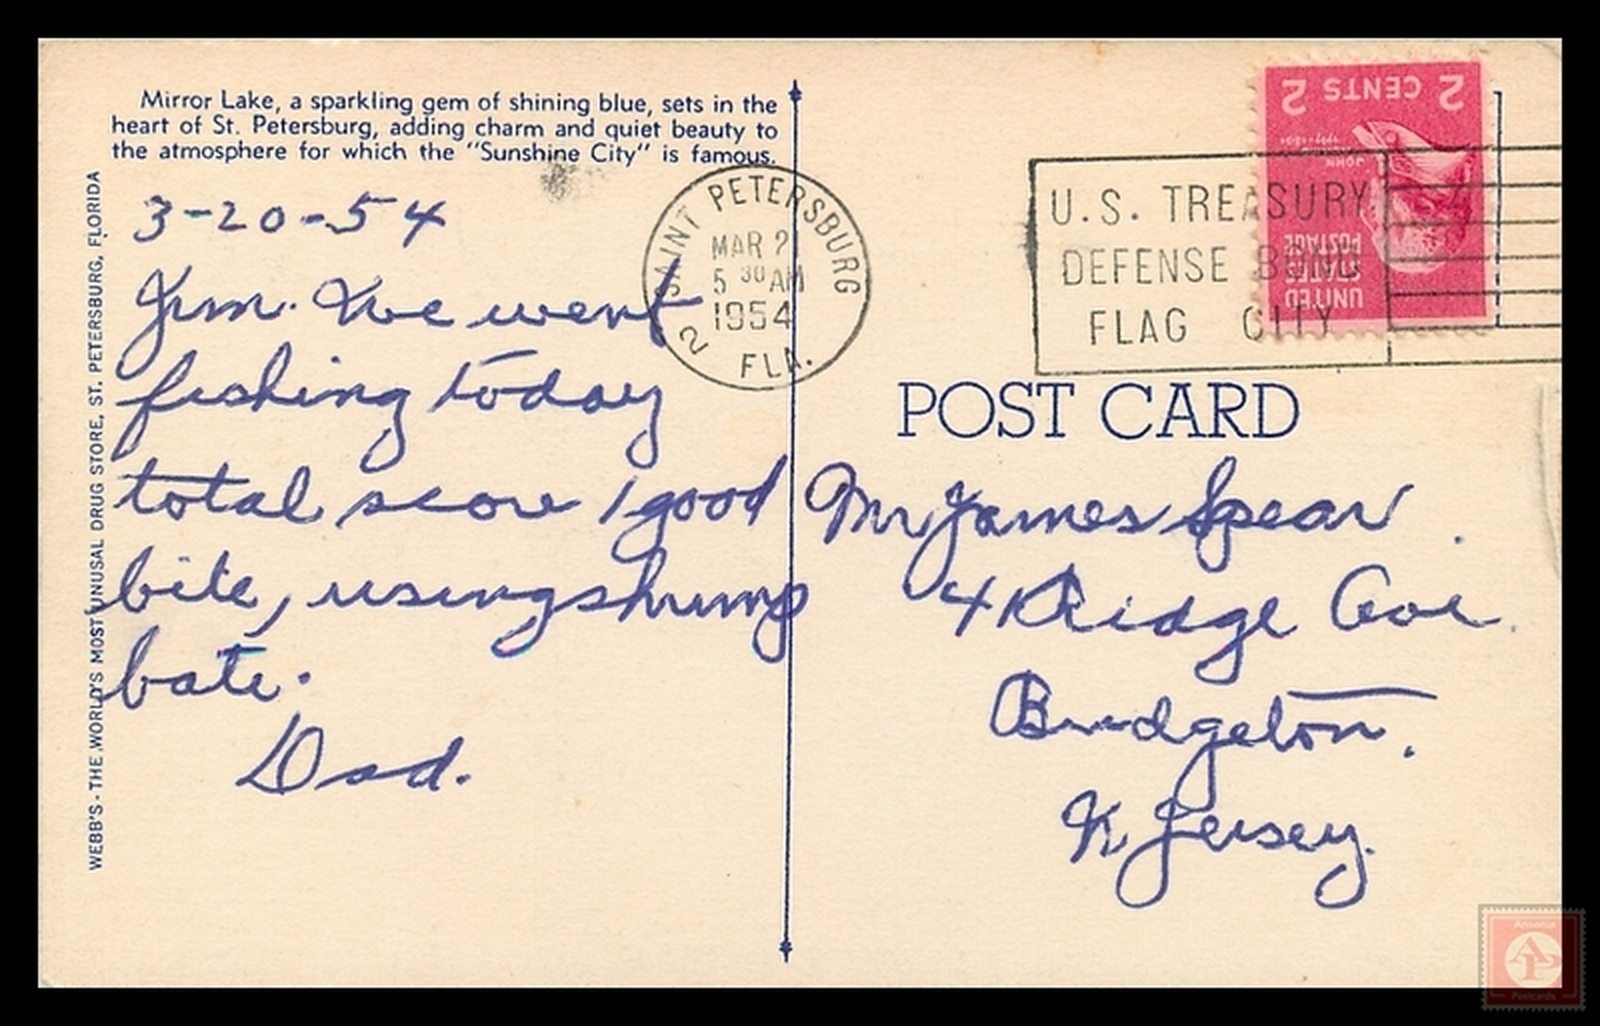 Mirror Lake, a sparkling gem of shining blue, sets in the
heart of St. Petersburg, adding charm and quiet beauty to
the atmosphere for which the "Sunshine City" is famous.
WEBB'S - THE WORLD'S MOST UNUSUAL DRUG STORE, ST. PETERSBURG, FLORIDA
3-20-54
Jim. We went
fishing today
total score 1 good
bite, using shrimp
bate.
Dad.
SAINT PETERSBURG
MAR 2
5 30 AM
1954
2 FLA.
U.S. TREASURY
DEFENSE BOND
FLAG CITY
2 CENTS 2
JOHN
UNITED
STATES
POSTAGE
POST CARD
Mr James Spear
4 Ridge Ave.
Bridgeton,
N Jersey.
AP
Postcards